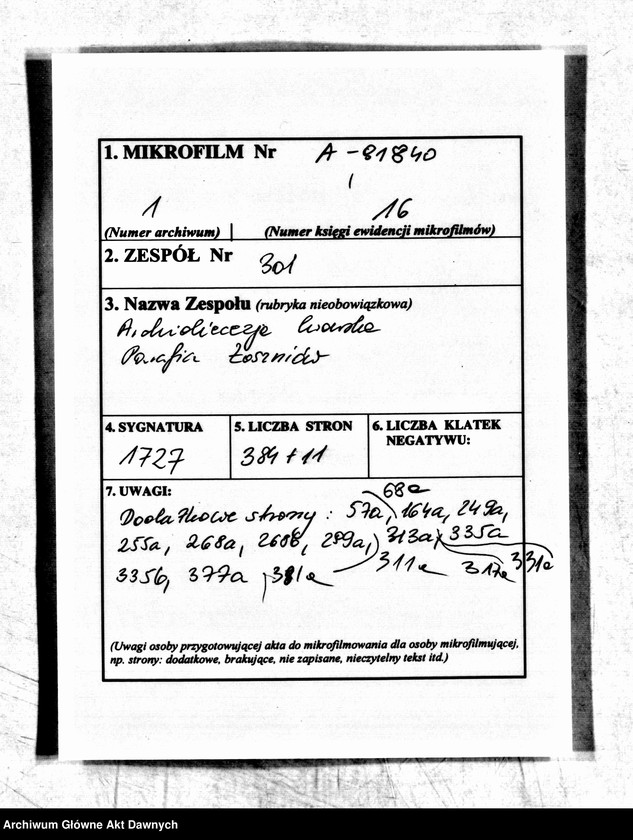 1. MIKROFILM Nr A-81840
1 16
(Numer archiwum) (Numer księgi ewidencji mikrofilmów)
2. ZESPÓŁ Nr 301
3. Nazwa Zespołu (rubryka nieobowiązkowa)
Archidiecezja Lwowska
Parafia Łoszniów
4. SYGNATURA 5. LICZBA STRON 6. LICZBA KLATEK
NEGATYWU:
1727 384+11
7. UWAGI:
68a
Dodatkowe strony: 57a, 164a, 249a,
255a, 268a, 268b, 289a, 313a, 335a
311a 317a 331a
335b, 377a, 381a
(Uwagi osoby przygotowującej akta do mikrofilmowania dla osoby mikrofilmującej,
np. strony: dodatkowe, brakujące, nie zapisane, nieczytelny tekst itd.)
Archiwum Główne Akt Dawnych